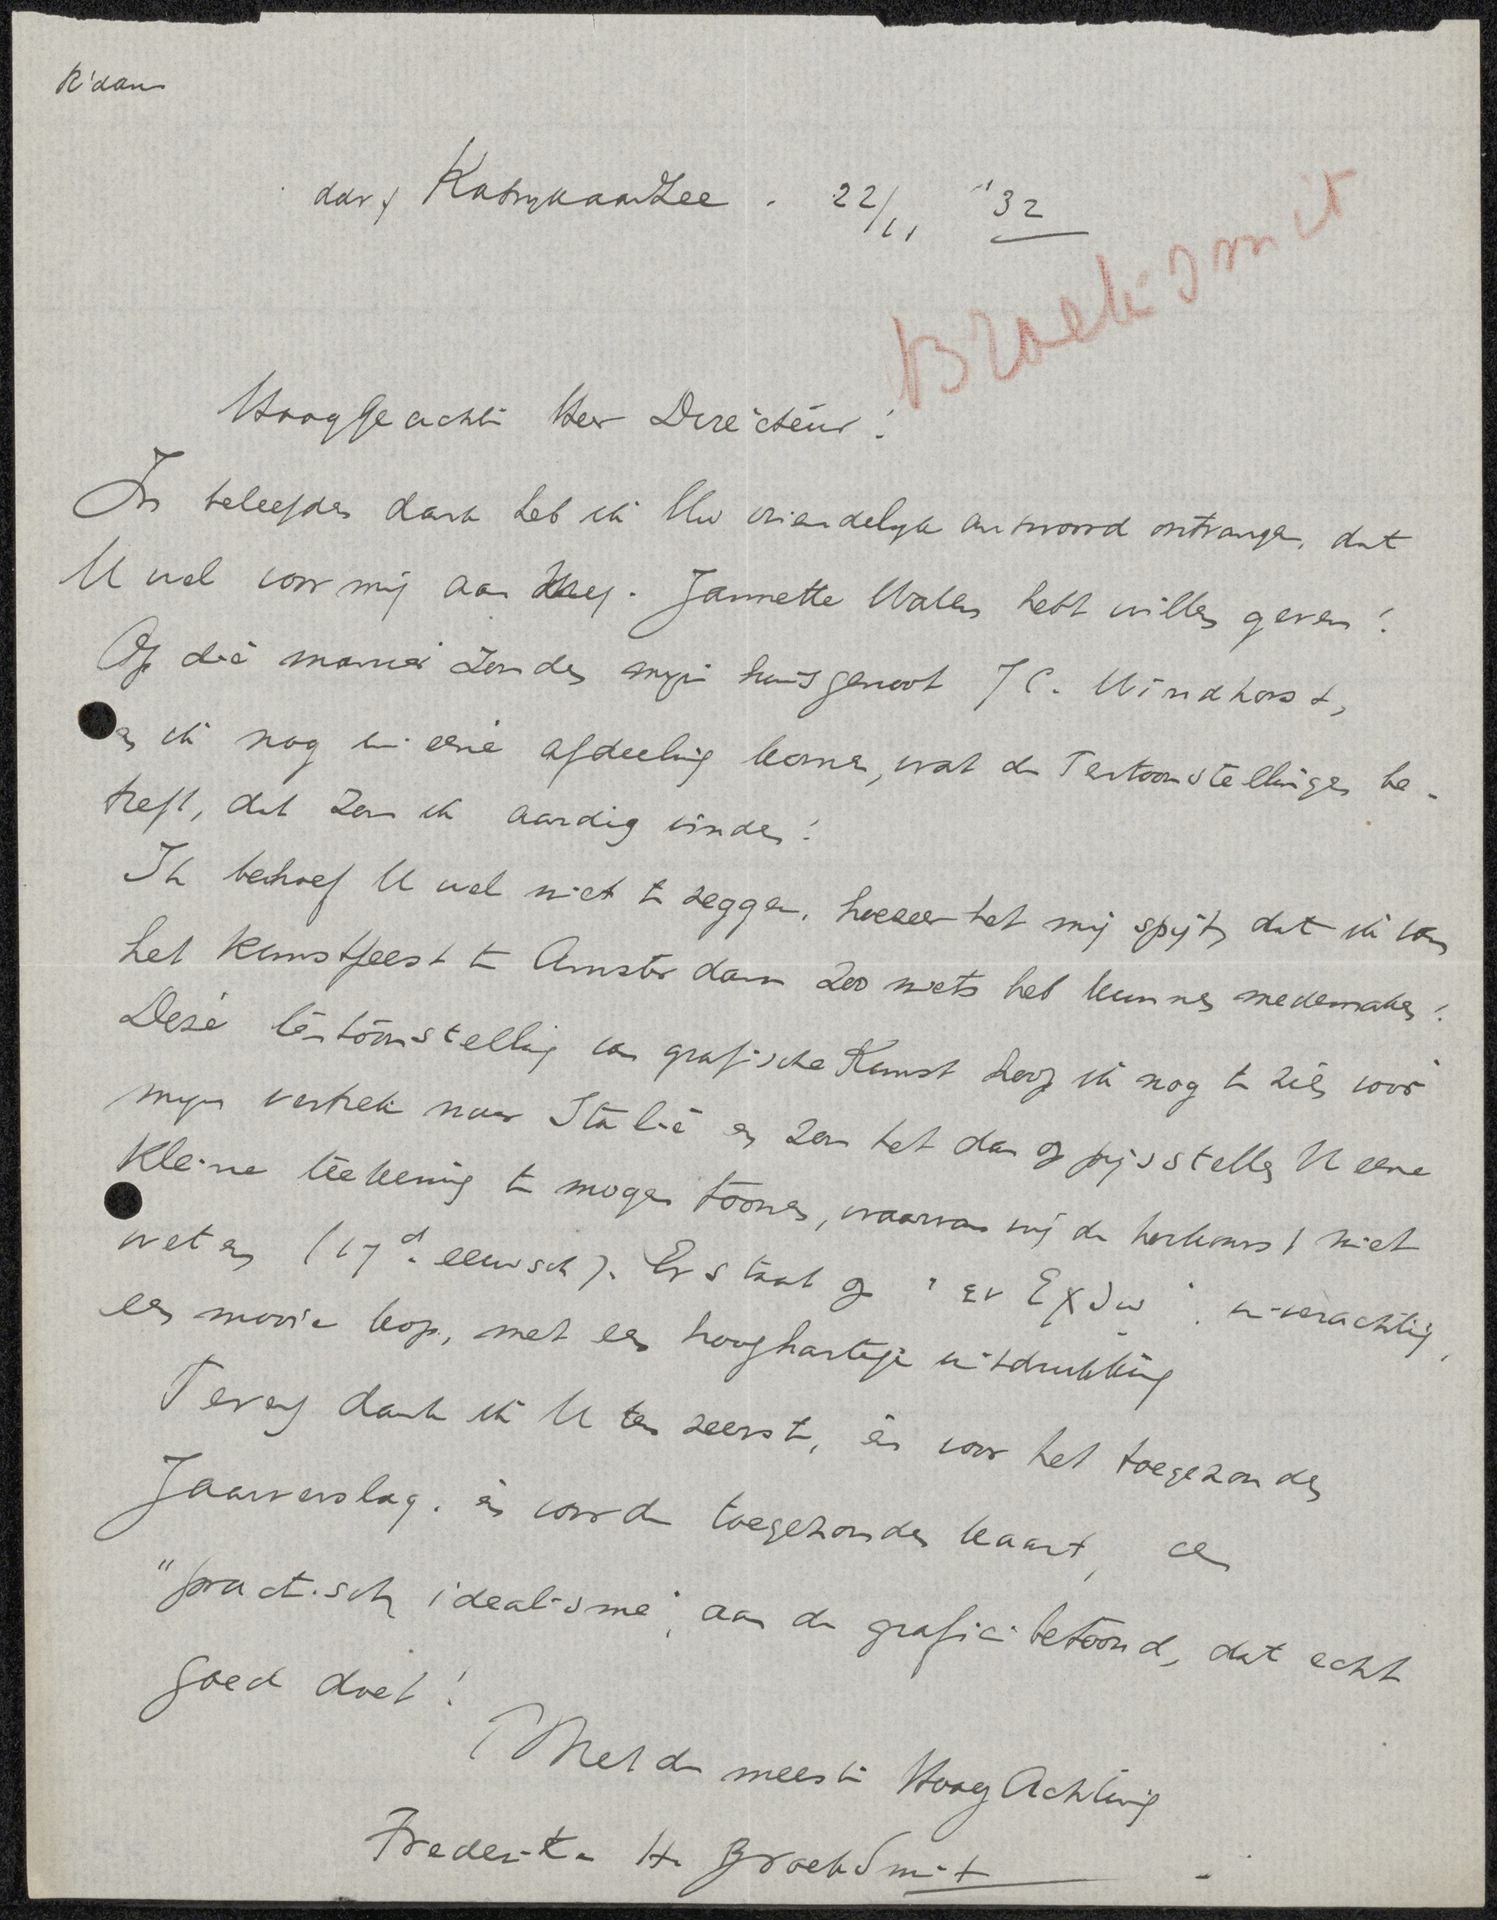 R'dam
Katwyk aan Zee. 22/11 '32
Broeksmit
HoogGeachte Heer Directeur!
In beleefden dank heb ik Uw vriendelyk antwoord ontvangen, dat
U wel voor mij aan Mej. Jannette Walen hebt willen geven!
Op die manier zouden myn huisgenoot J C. Windhorst,
en ik nog in eene afdeeling komen, wat de Tentoonstellingen be-
treft, dat zou ik aardig vinden!
Ik behoef U wel niet te zeggen, hoezeer het mij spijt, dat ik van
het Kunstfeest te Amsterdam zoo niets heb kunnen medemaken!
Deze tentoonstelling van grafische Kunst hoop ik nog te zien vóór
myn vertrek naar Italië en zou het dan op prijs stellen U eene
kleine teekening te mogen toonen, waarvan wij de herkomst niet
weten (17de eeuwsch). Er staat op "εν Εχδω".
een mooie kop, met een hooghartige uitdrukking
Tevens dank ik U ten zeerste, èn voor het toegezonden
Jaarverslag, èn voor de toegezonden kaart, een
"practisch idealisme", aan de grafici betoond, dat echt
goed doet!
Met de meeste HoogAchting
Frederika H. Broeksmit